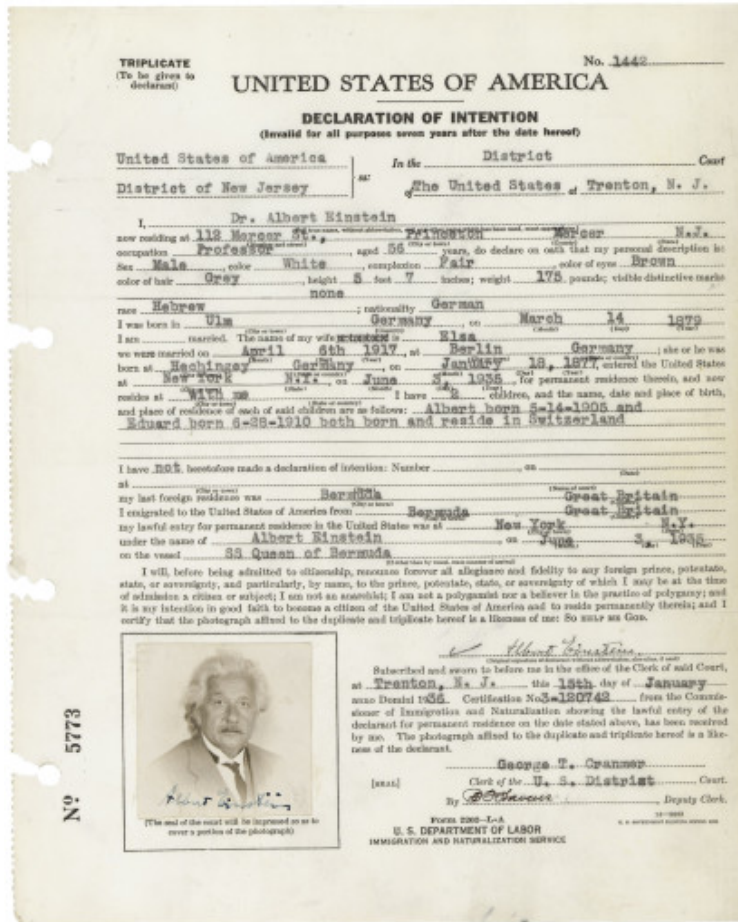 TRIPLICATE
(To be given to
declarant)
No. 1442
UNITED STATES OF AMERICA
DECLARATION OF INTENTION
(Invalid for all purposes seven years after the date hereof)
United States of America
District of New Jersey
ss:
In the District Court
of The United States of Trenton, N. J.
I, Dr. Albert Einstein
now residing at 112 Mercer St., Princeton Mercer N.J.
occupation Professor, aged 56 years, do declare on oath that my personal description is:
Sex Male, color White, complexion Fair, color of eyes Brown
color of hair Grey, height 5 feet 7 inches; weight 175 pounds; visible distinctive marks
none
race Hebrew; nationality German
I was born in Ulm Germany, on March 14 1879
I am married. The name of my wife is Elsa
we were married on April 6th 1917, at Berlin Germany; she or he was
born at Hechingey Germany, on January 18, 1877, entered the United States
at New York N.Y., on June 3, 1935, for permanent residence therein, and now
resides at With me. I have 2 children, and the name, date and place of birth,
and place of residence of each of said children are as follows: Albert born 5-14-1905 and
Eduard born 6-28-1910 both born and reside in Switzerland
I have not heretofore made a declaration of intention: Number, on
at
my last foreign residence was Bermuda Great Britain
I emigrated to the United States of America from Bermuda Great Britain
my lawful entry for permanent residence in the United States was at New York N.Y.
under the name of Albert Einstein, on June 3, 1935
on the vessel SS Queen of Bermuda
I will, before being admitted to citizenship, renounce forever all allegiance and fidelity to any foreign prince, potentate,
state, or sovereignty, and particularly, by name, to the prince, potentate, state, or sovereignty of which I may be at the time
of admission a citizen or subject; I am not an anarchist; I am not a polygamist nor a believer in the practice of polygamy; and
it is my intention in good faith to become a citizen of the United States of America and to reside permanently therein; and I
certify that the photograph affixed to the duplicate and triplicate hereof is a likeness of me: SO HELP ME GOD.
Albert Einstein
Subscribed and sworn to before me in the office of the Clerk of said Court,
at Trenton, N. J. this 15th day of January
anno Domini 1936. Certification No. 3-120742 from the Commis-
sioner of Immigration and Naturalization showing the lawful entry of the
declarant for permanent residence on the date stated above, has been received
by me. The photograph affixed to the duplicate and triplicate hereof is a like-
ness of the declarant.
George T. Cranmer
[SEAL] Clerk of the U. S. District Court.
By Deputy Clerk.
Form 2202-L-A
U. S. DEPARTMENT OF LABOR
IMMIGRATION AND NATURALIZATION SERVICE
Albert Einstein
(The seal of the court will be impressed so as to
cover a portion of the photograph)
No 5773